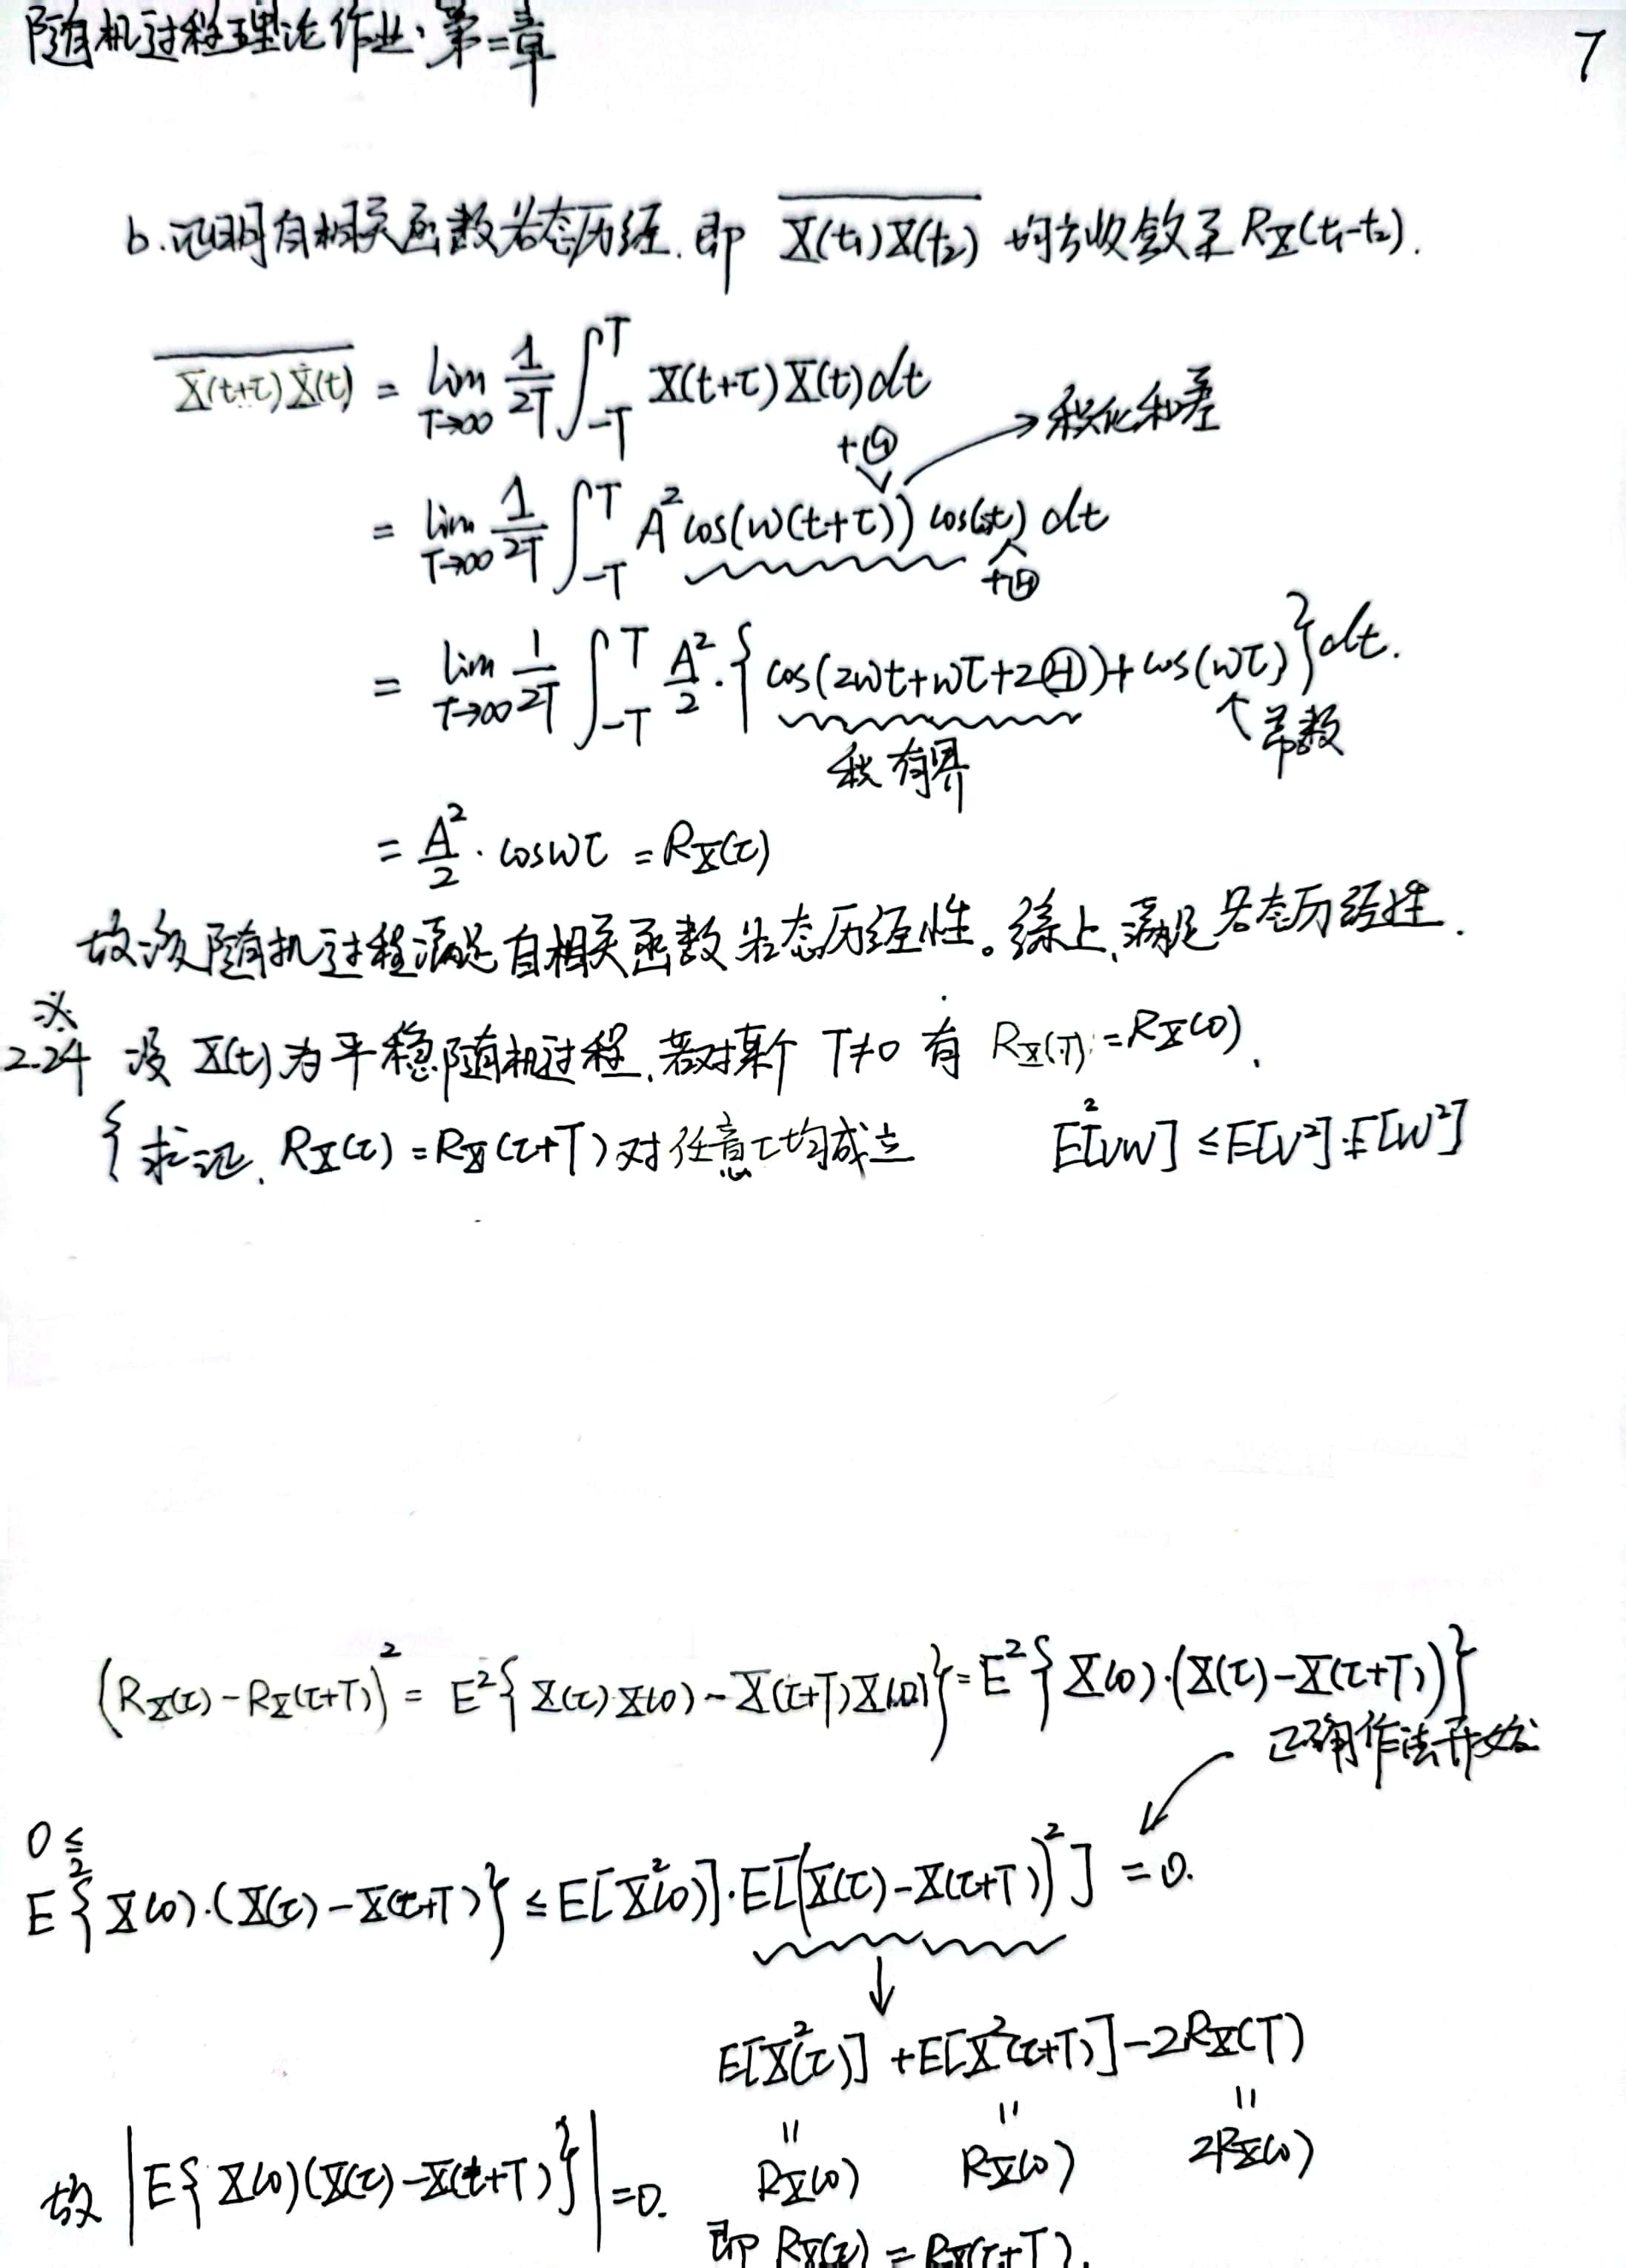 随机过程理论作业·第二章
7
b.证明自相关函数各态历经.即 \overline{X(t₁)X(t₂)} 均方收敛至 R_X(t₁-t₂).
\overline{X(t+τ)X(t)} = lim_{T→∞} 1/2T ∫_{-T}^{T} X(t+τ)X(t)dt
+Θ → 积化和差
= lim_{T→∞} 1/2T ∫_{-T}^{T} A² cos(ω(t+τ)) cos(ωt) dt
+Θ
= lim_{T→∞} 1/2T ∫_{-T}^{T} A²/2 · { cos(2ωt+ωτ+2Θ)+cos(ωτ) } dt.
积有界 ↑常数
= A²/2 · cosωτ = R_X(τ)
故该随机过程满足自相关函数各态历经性。综上,满足各态历经性.
※
2.24 设 X(t) 为平稳随机过程,若对某个 T≠0 有 R_X(T)=R_X(0).
{ 求证. R_X(τ)=R_X(τ+T) 对任意τ均成立 E²[VW] ≤ E[V²]·E[W²]
(R_X(τ)-R_X(τ+T))² = E²{ X(τ)X(0) - X(τ+T)X(0) } = E²{ X(0)·(X(τ)-X(τ+T)) }
正确作法开始
0 ≤
E²{ X(0)·(X(τ)-X(τ+T) } ≤ E[X²(0)]·E[(X(τ)-X(τ+T))²] = 0.
↓
E[X²(τ)] + E[X²(τ+T)] - 2R_X(T)
= = =
R_X(0) R_X(0) 2R_X(0)
故 |E{ X(0)(X(τ)-X(τ+T) }| = 0.
即 R_X(τ) = R_X(τ+T).